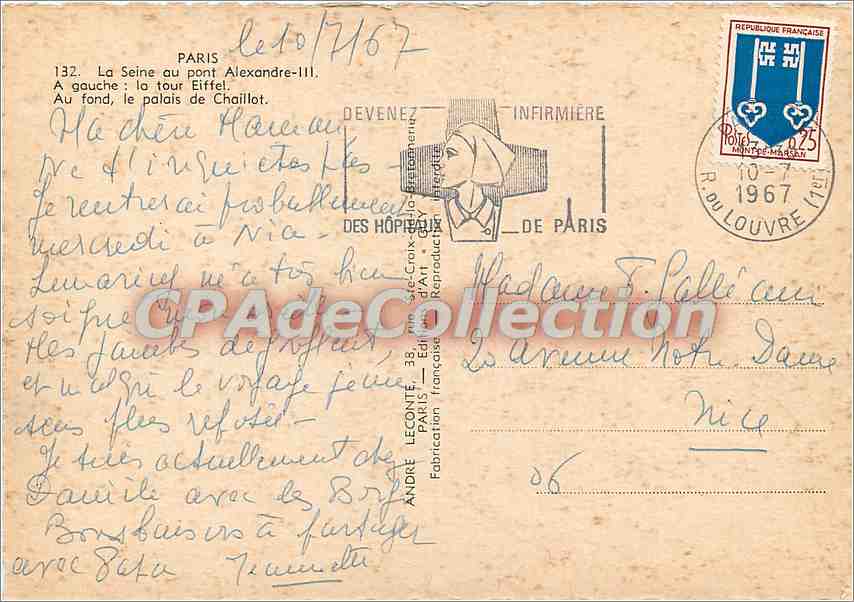 PARIS
le 10/7/67
132. La Seine au pont Alexandre-III.
A gauche : la tour Eiffel.
Au fond, le palais de Chaillot.
Ma chère Maman
Ne t'inquiètes pas -
Je rentrerai probablement
mercredi à Nice -
m'a très bien
soignée
Mes jambes dégonflent,
et malgré le voyage je me
sens plus reposée -
Je suis actuellement chez
Danièle avec les
Bons baisers à partager
avec Papa Jeannette
DEVENEZ INFIRMIÈRE
DES HÔPITAUX DE PARIS
REPUBLIQUE FRANÇAISE
Postes 0,25
MONT-DE-MARSAN
10-7
1967
R. DU LOUVRE (1er)
ANDRÉ LECONTE, 38, rue Ste-Croix-de-la-Bretonnerie
PARIS — Editions d'Art "GUY"
Fabrication française — Reproduction interdite
Madame F. Galléani
20 avenue Notre Dame
Nice
06
CPAdeCollection